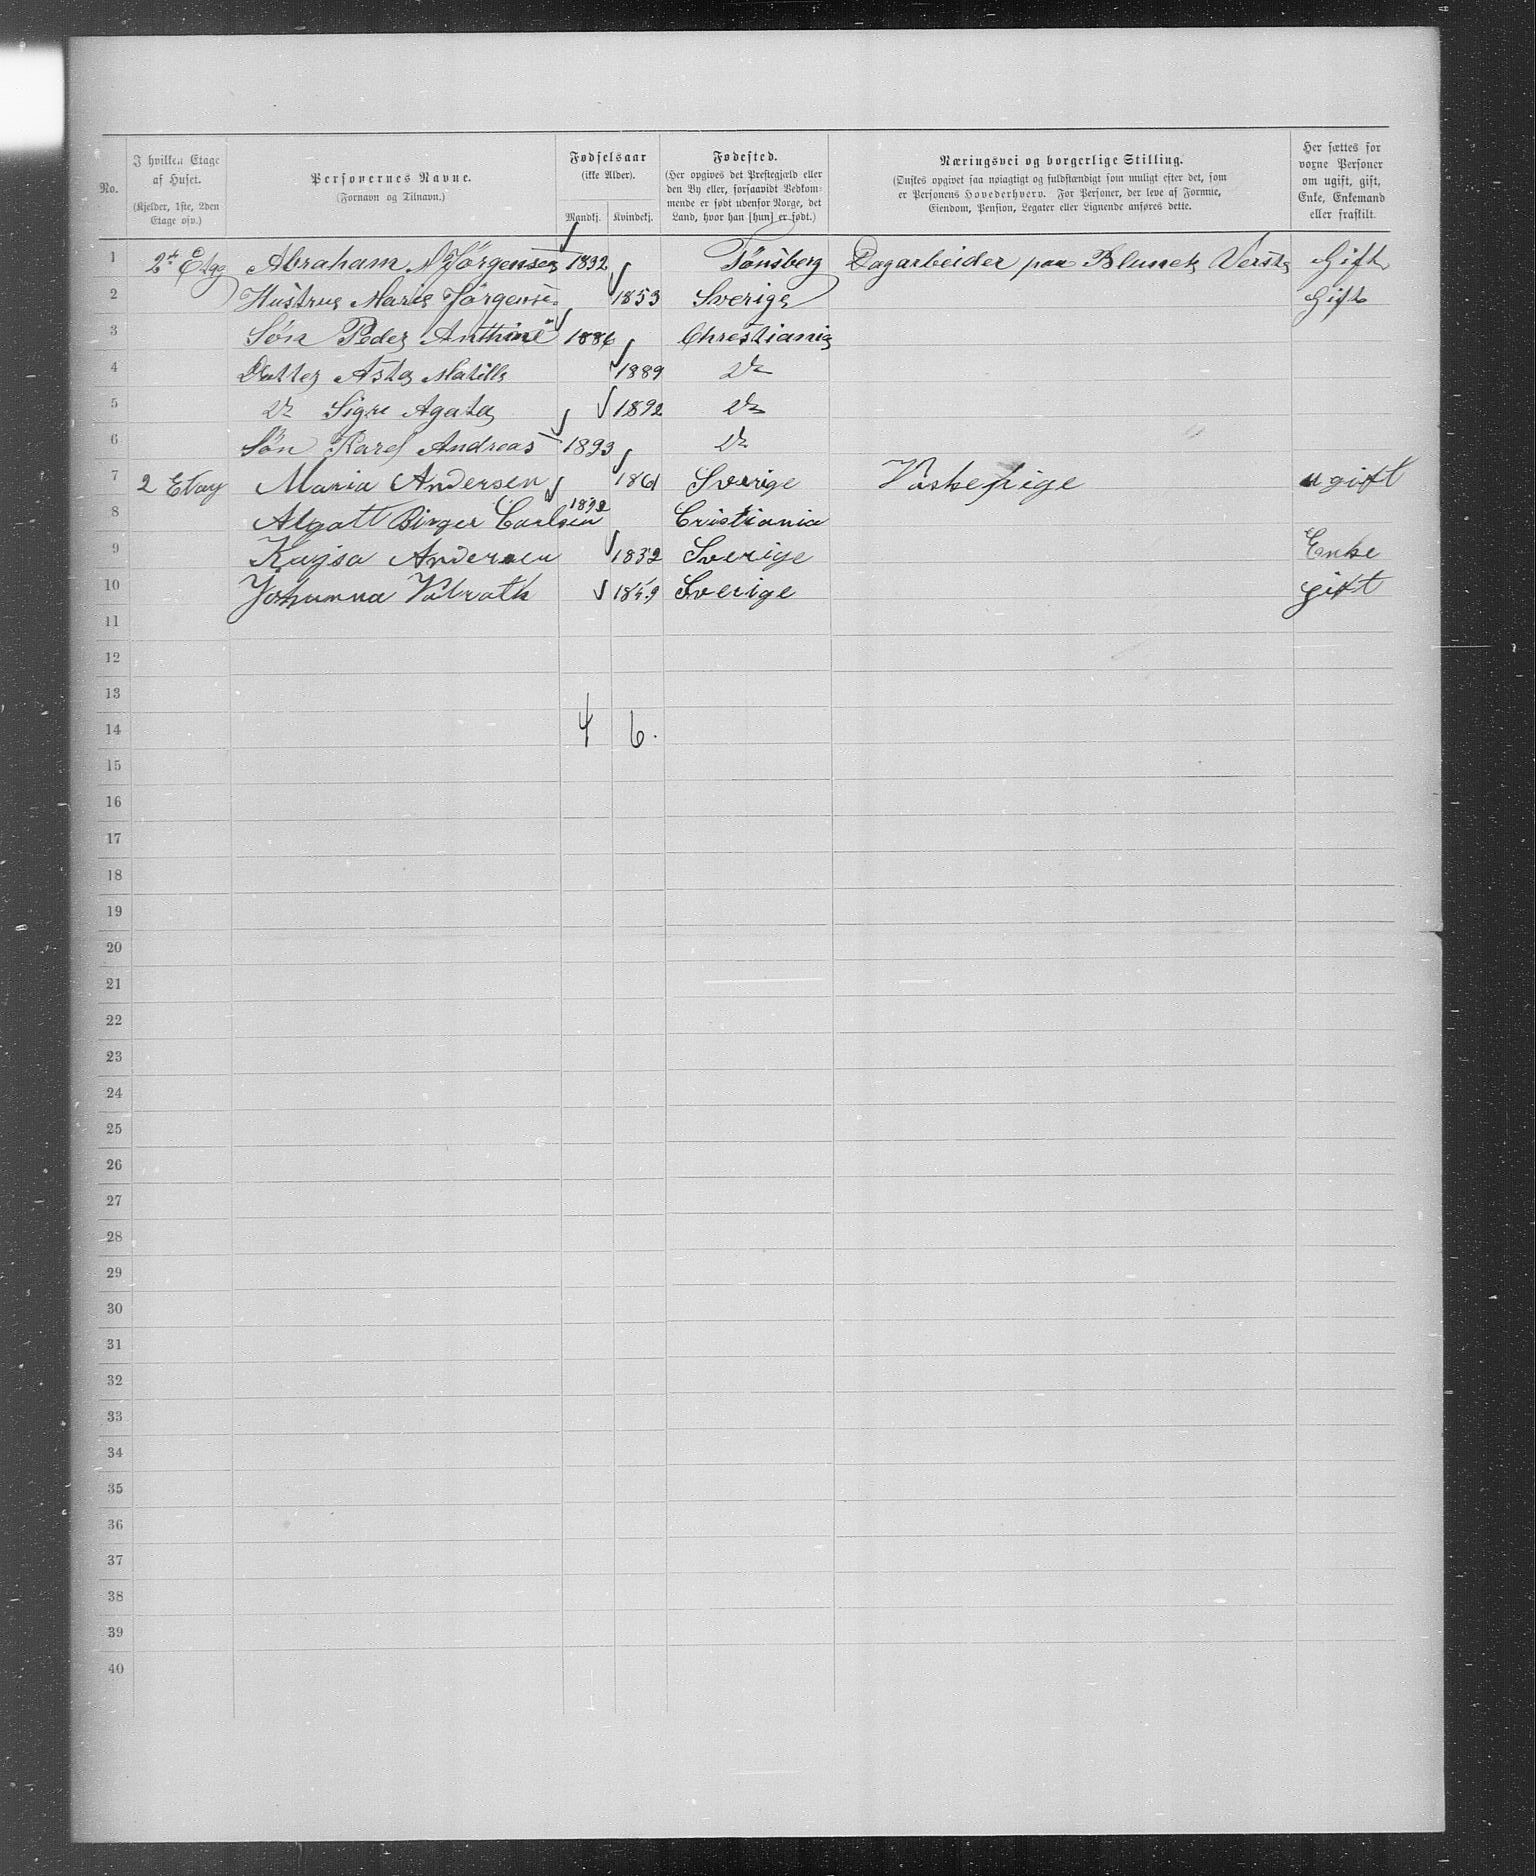 No.
I hvilken Etage af Huset. (Kjelder, 1ste, 2den Etage osv.)
Personernes Navne. (Fornavn og Tilnavn.)
Fødselsaar (ikke Alder).
Mandkj. Kvindekj.
Fødested. (Her opgives det Prestegjæld eller den By eller, forsaavidt Vedkommende er født udenfor Norge, det Land, hvor han [hun] er født.)
Næringsvei og borgerlige Stilling. (Ønskes opgivet saa nøiagtigt og fuldstændigt som muligt efter det, som er Personens Hovederhverv. For Personer, der leve af Formue, Eiendom, Pension, Legater eller Lignende anføres dette.
Her sættes for voxne Personer om ugift, gift, Enke, Enkemand eller fraskilt.
1 2n Etge Abraham N Jørgensen 1832 Tønsberg Dagarbeider paa Gift
2 Hustrue Marie Jørgensen 1853 Sverige Gift
3 Søn Peder Anthine 1886 Christiania
4 Datter Asta Matille 1889 Do
5 Do Sigre Agata 1892 Do
6 Søn Karel Andreas 1893 Do
7 2 Etay Maria Andersen 1861 Sverige Vaskepige ugift
8 Algott Birger Carlsen 1892 Cristiania
9 Kajsa Andersen 1832 Sverige Enke
10 Johanna Valrath 1849 Sverige gift
11
12
13
14 4 6.
15
16
17
18
19
20
21
22
23
24
25
26
27
28
29
30
31
32
33
34
35
36
37
38
39
40